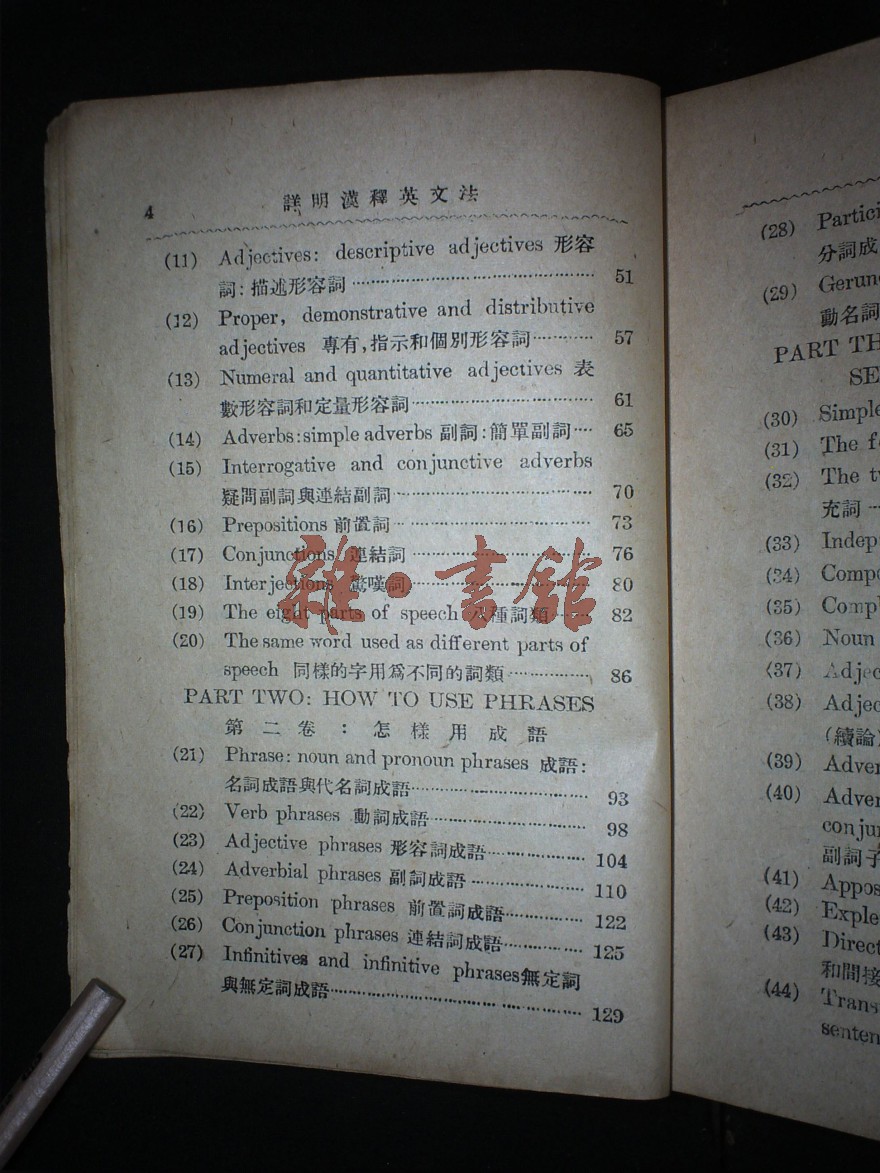 4 詳明漢釋英文法
(11) Adjectives: descriptive adjectives 形容
詞:描述形容詞 51
(12) Proper, demonstrative and distributive
adjectives 專有,指示和個別形容詞 57
(13) Numeral and quantitative adjectives 表
數形容詞和定量形容詞 61
(14) Adverbs:simple adverbs 副詞:簡單副詞 65
(15) Interrogative and conjunctive adverbs
疑問副詞與連結副詞 70
(16) Prepositions 前置詞 73
(17) Conjunctions 連結詞 76
(18) Interjections 驚嘆詞 80
(19) The eight parts of speech 八種詞類 82
(20) The same word used as different parts of
speech 同樣的字用爲不同的詞類 86
PART TWO: HOW TO USE PHRASES
第二卷:怎樣用成語
(21) Phrase: noun and pronoun phrases 成語:
名詞成語與代名詞成語 93
(22) Verb phrases 動詞成語 98
(23) Adjective phrases 形容詞成語 104
(24) Adverbial phrases 副詞成語 110
(25) Preposition phrases 前置詞成語 122
(26) Conjunction phrases 連結詞成語 125
(27) Infinitives and infinitive phrases無定詞
與無定詞成語 129
雜·書館
(28) Partici
分詞成
(29) Gerun
動名詞
PART TH
SE
(30) Simple
(31) The f
(32) The t
充詞
(33) Indep
(34) Compo
(35) Comp
(36) Noun
(37) Adjec
(38) Adjec
(續論)
(39) Adver
(40) Adver
conju
副詞子
(41) Appos
(42) Exple
(43) Direct
和間接
(44) Trans
senten